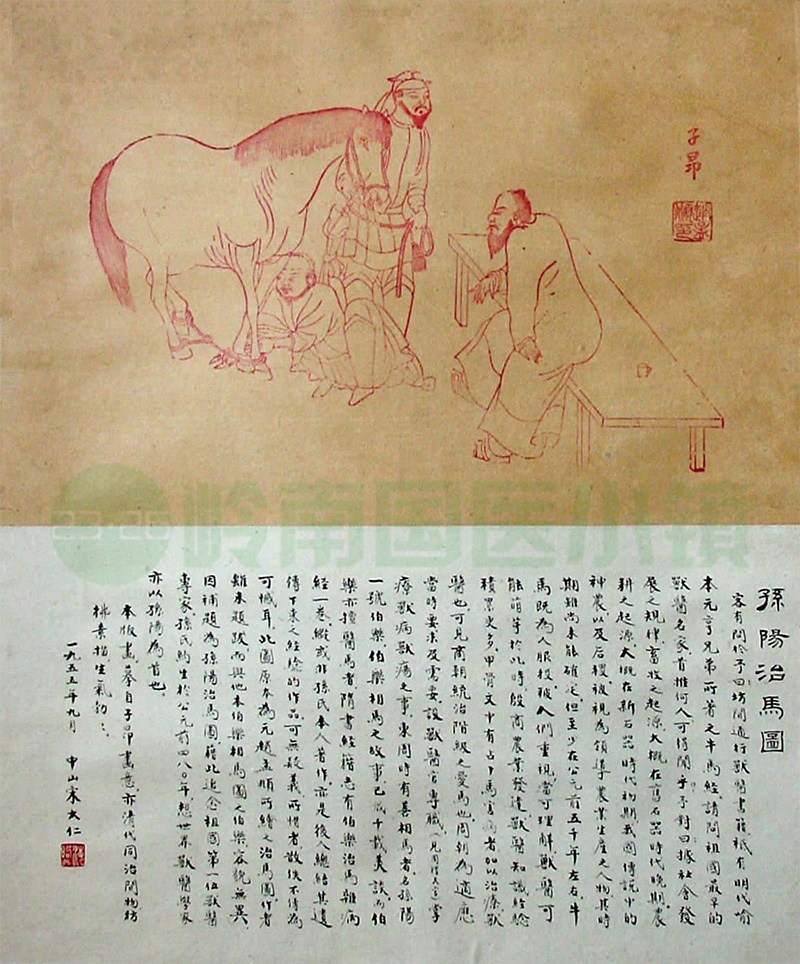 子昂
23°26'
岭南国医小镇
孫陽治馬圖
客有問於予曰坊間通行獸醫書籍祇有明代喻
本元亨兄弟所著之牛馬經請問祖國最早的
獸醫名家首推何人可得聞乎予對曰據社會發
展之規律畜牧之起源大概在舊石器時代晚期農
耕之起源大概在新石器時代初期我國傳說中的
神農以及后稷被視為領導農業生產之人物其時
期雖尚未能確定但至少在公元前五千年左右牛
馬既為人服役被人們重視當可理解獸醫可
能萌芽於此時殷商農業發達獸醫知識經驗
積累更多甲骨文中有占卜馬害病者加以治療獸
醫也可見商朝統治階級之愛馬也周朝為適應
當時要求及需要設獸醫官專職見周禮天官掌
療獸病獸瘍之事東周時有善相馬者名孫陽
一號伯樂伯樂相馬之故事已成千載美談而伯
樂亦擅醫馬者隋書經籍志有伯樂治馬雜病
經一卷縱或非孫氏本人著作亦是後人總結其遺
傳下來之經驗的作品可無疑義所惜者散佚不傳為
可憾耳此圖原本為元趙孟頫所繪之治馬圖作者
雖未題跋而與他本伯樂相馬圖之伯樂容貌無異
因補題為孫陽治馬圖藉此追念祖國第一位獸醫
專家孫氏約生於公元前四八〇年想世界獸醫學家
亦以孫陽為首也
本版畫摹自子昂畫意亦清代同治間物坊
素描生氣勃々
一九五五年九月 中山宋大仁